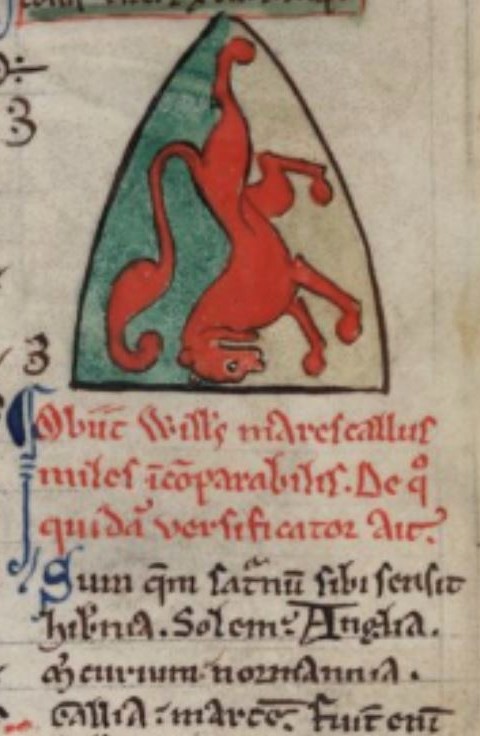 Obiit Will's marescallus
miles īcōparabilis. De qͦ
quidā versificator ait.
Sum qͥm satᵃnū sibi sensit
hib'nia. Solem: Anglia.
M̄curium: normannia.
Gallia: martē. Fuit eniᷓ